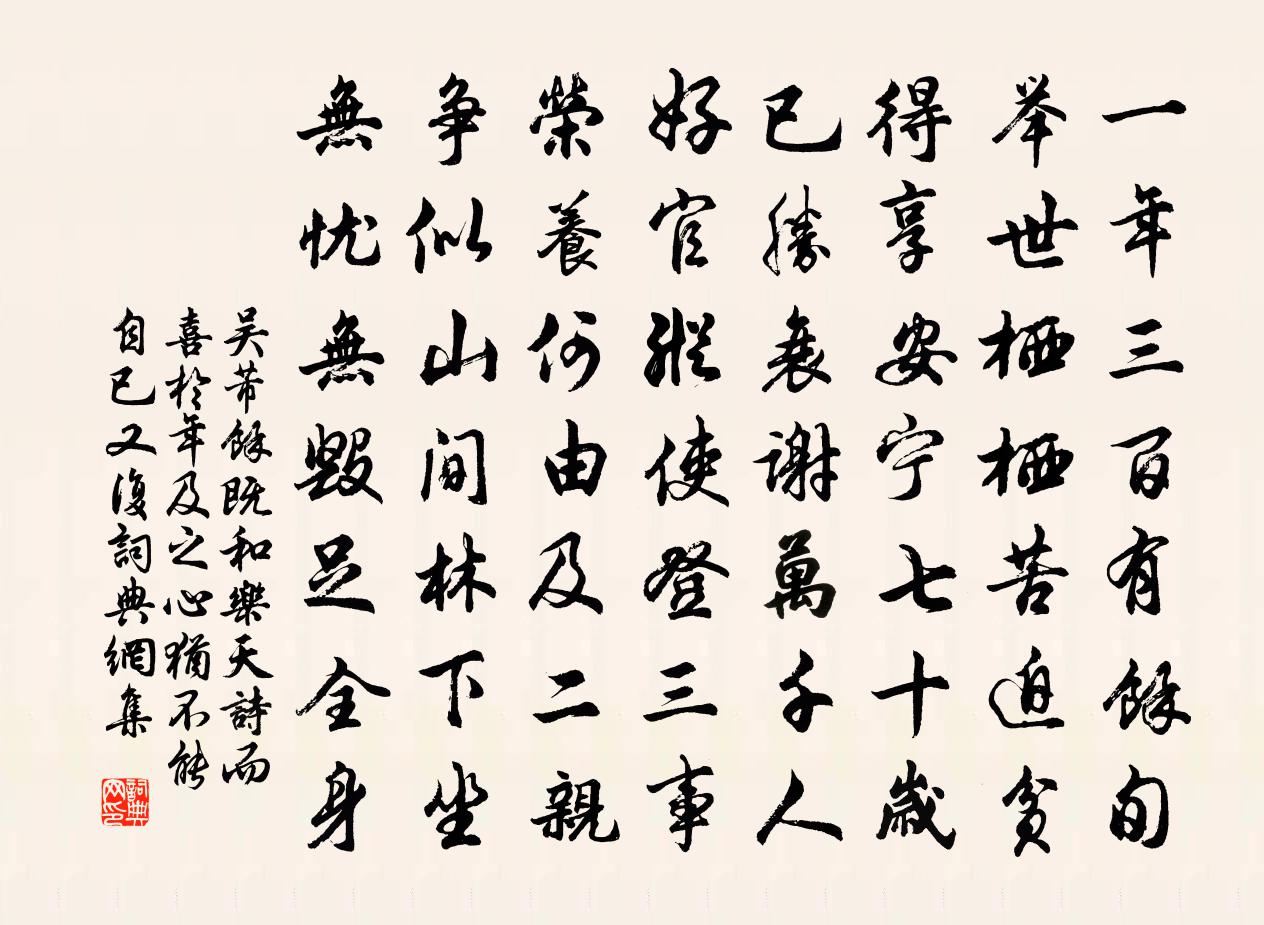 一年三百有餘旬
举世栖栖苦迫貧
得享安宁七十歲
已勝衰謝萬千人
好官縱使登三事
榮養何由及二親
争似山间林下坐
無忧無毀足全身
吴芾餘既和樂天詩而
喜於年及之心猶不能
自已又復詞典網集
詞典网印